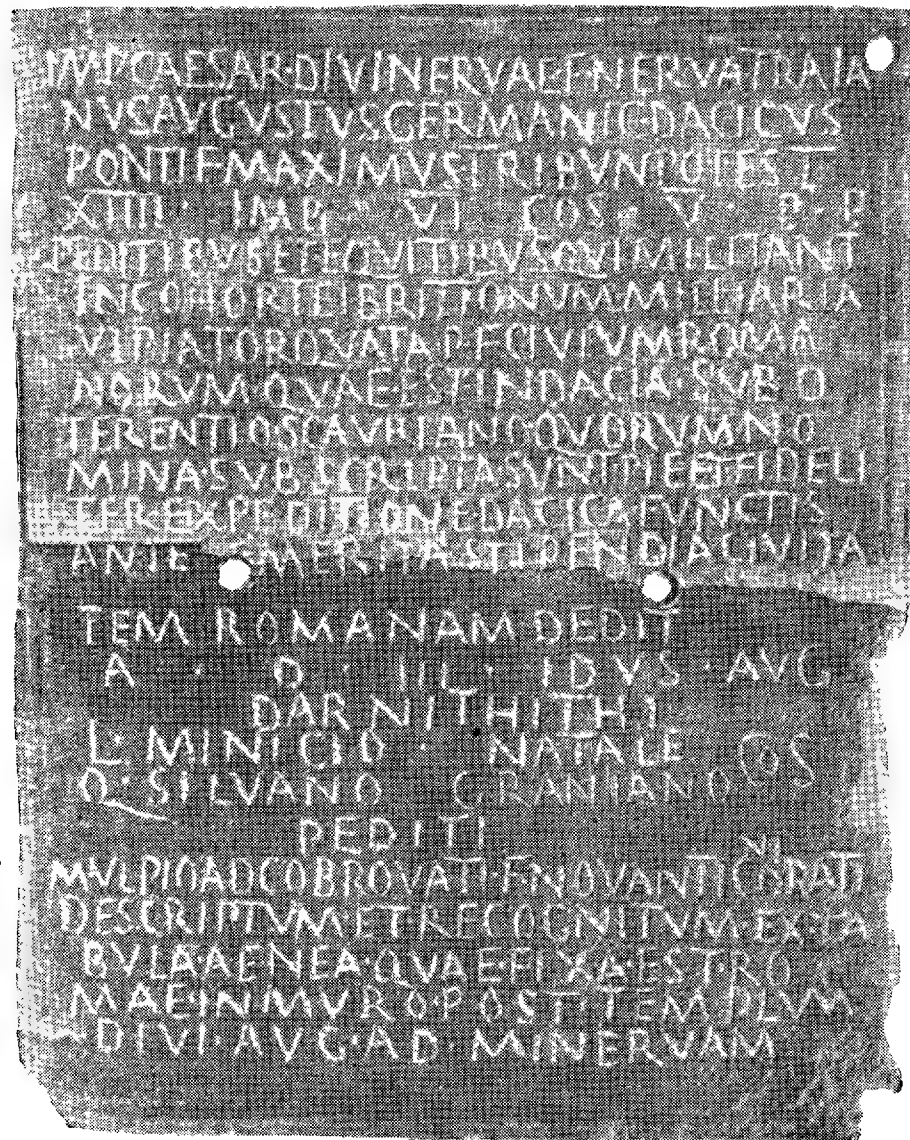 IMP·CAESAR·DIVI NERVAE·F·NERVA TRAIA
NVS AVGVSTVS GERMANIC·DACICVS
PONTIF MAXIMVS TRIBVN POTEST
XIIII · IMP · VI COS · V · P · P
PEDITIBVS ET EQVITIBVS QVI MILITANT
IN COHORTE I BRITTONVM MILLIARIA
VLPIA TORQVATA P·F·CIVIVM ROMA
NORVM QVAE EST IN DACIA·SVB D
TERENTIO SCAVRIANO·QVORVM NO
MINA·SVBSCRIPTA SVNT PIE ET FIDELI
TER EXPEDITIONE DACICA FVNCTIS
ANTE EMERITA STIPENDIA CIVITA
TEM ROMANAM DEDIT
A · D · III · IDVS · AVG
DARNITHITHI
L· MINICIO · NATALE COS
Q· SILVANO GRANIANO
PEDITI
M VLPIO ADCOBROVATI·F·NOVANTICONI RATI
DESCRIPTVM·ET RECOGNITVM·EX·TA
BVLA·AENEA·QVAE·FIXA·EST·RO
MAE·IN MVRO·POST·TEMPLVM
DIVI·AVG·AD MINERVAM